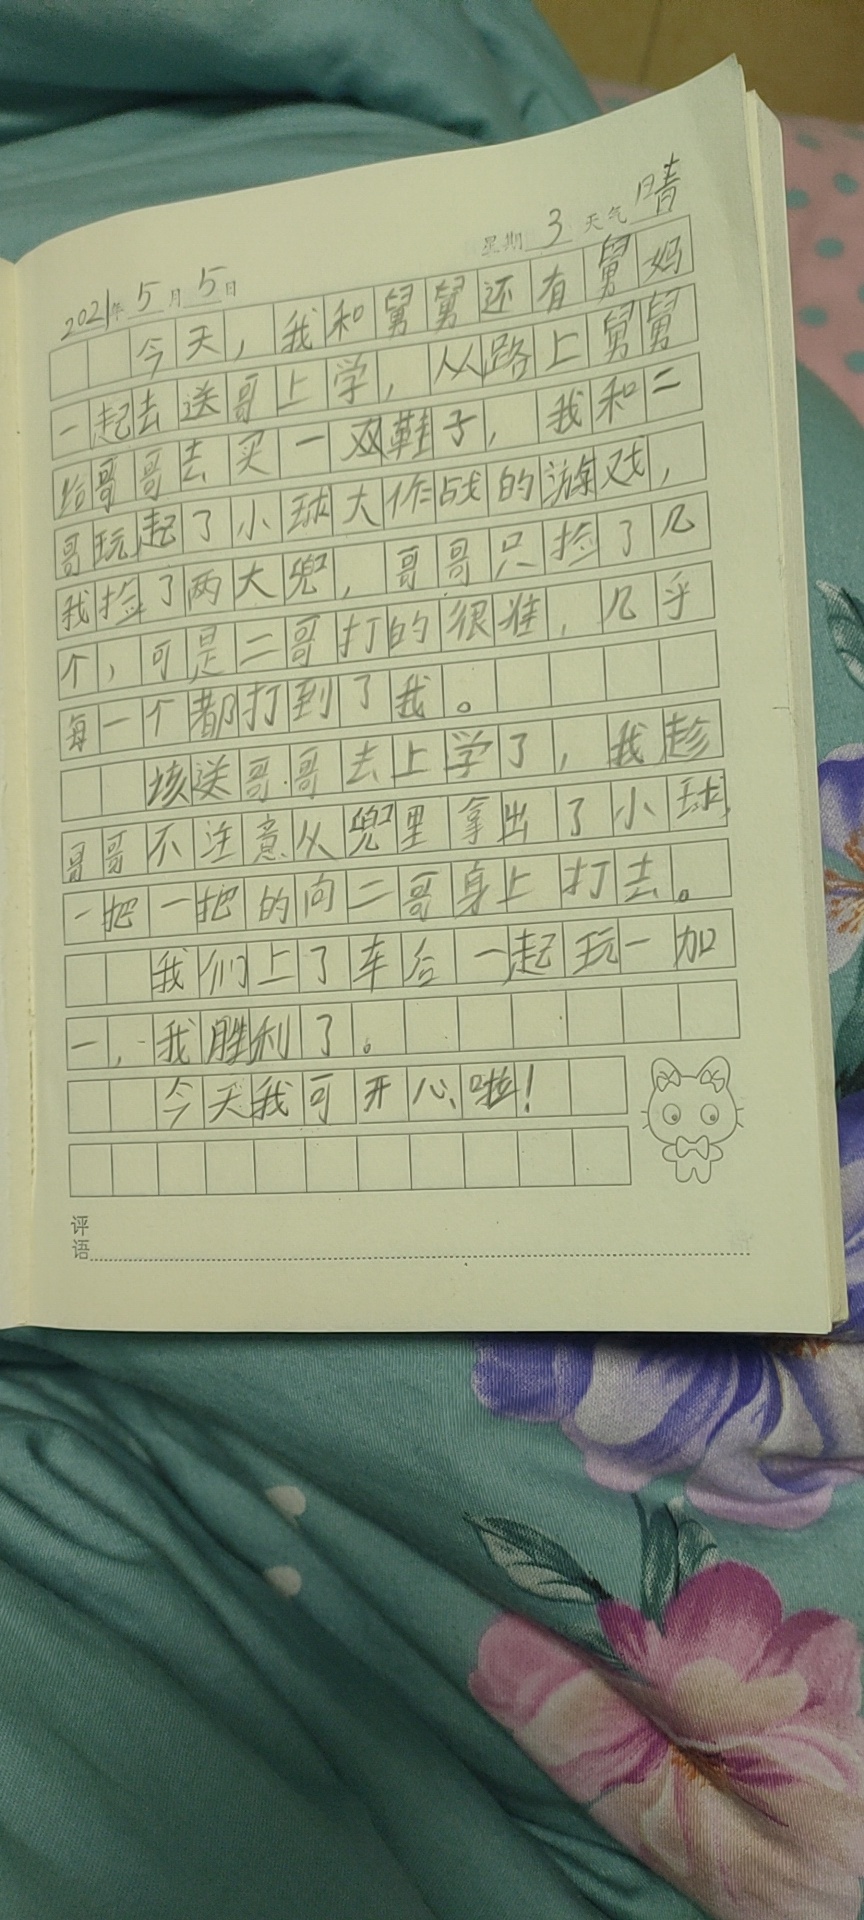 2021年5月5日 星期3 天气晴
今天,我和舅舅还有舅妈
一起去送哥上学,从路上舅舅
给哥哥去买一双鞋子,我和二
哥玩起了小球大作战的游戏,
我捡了两大兜,哥哥只捡了几
个,可是二哥打的很准,几乎
每一个都打到了我。
该送哥哥去上学了,我趁
哥哥不注意从兜里拿出了小球,
一把一把的向二哥身上打去。
我们上了车后一起玩一加
一,我胜利了。
今天我可开心啦!
评语